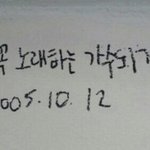 꼭 노래하는 가수되기
2005.10.12